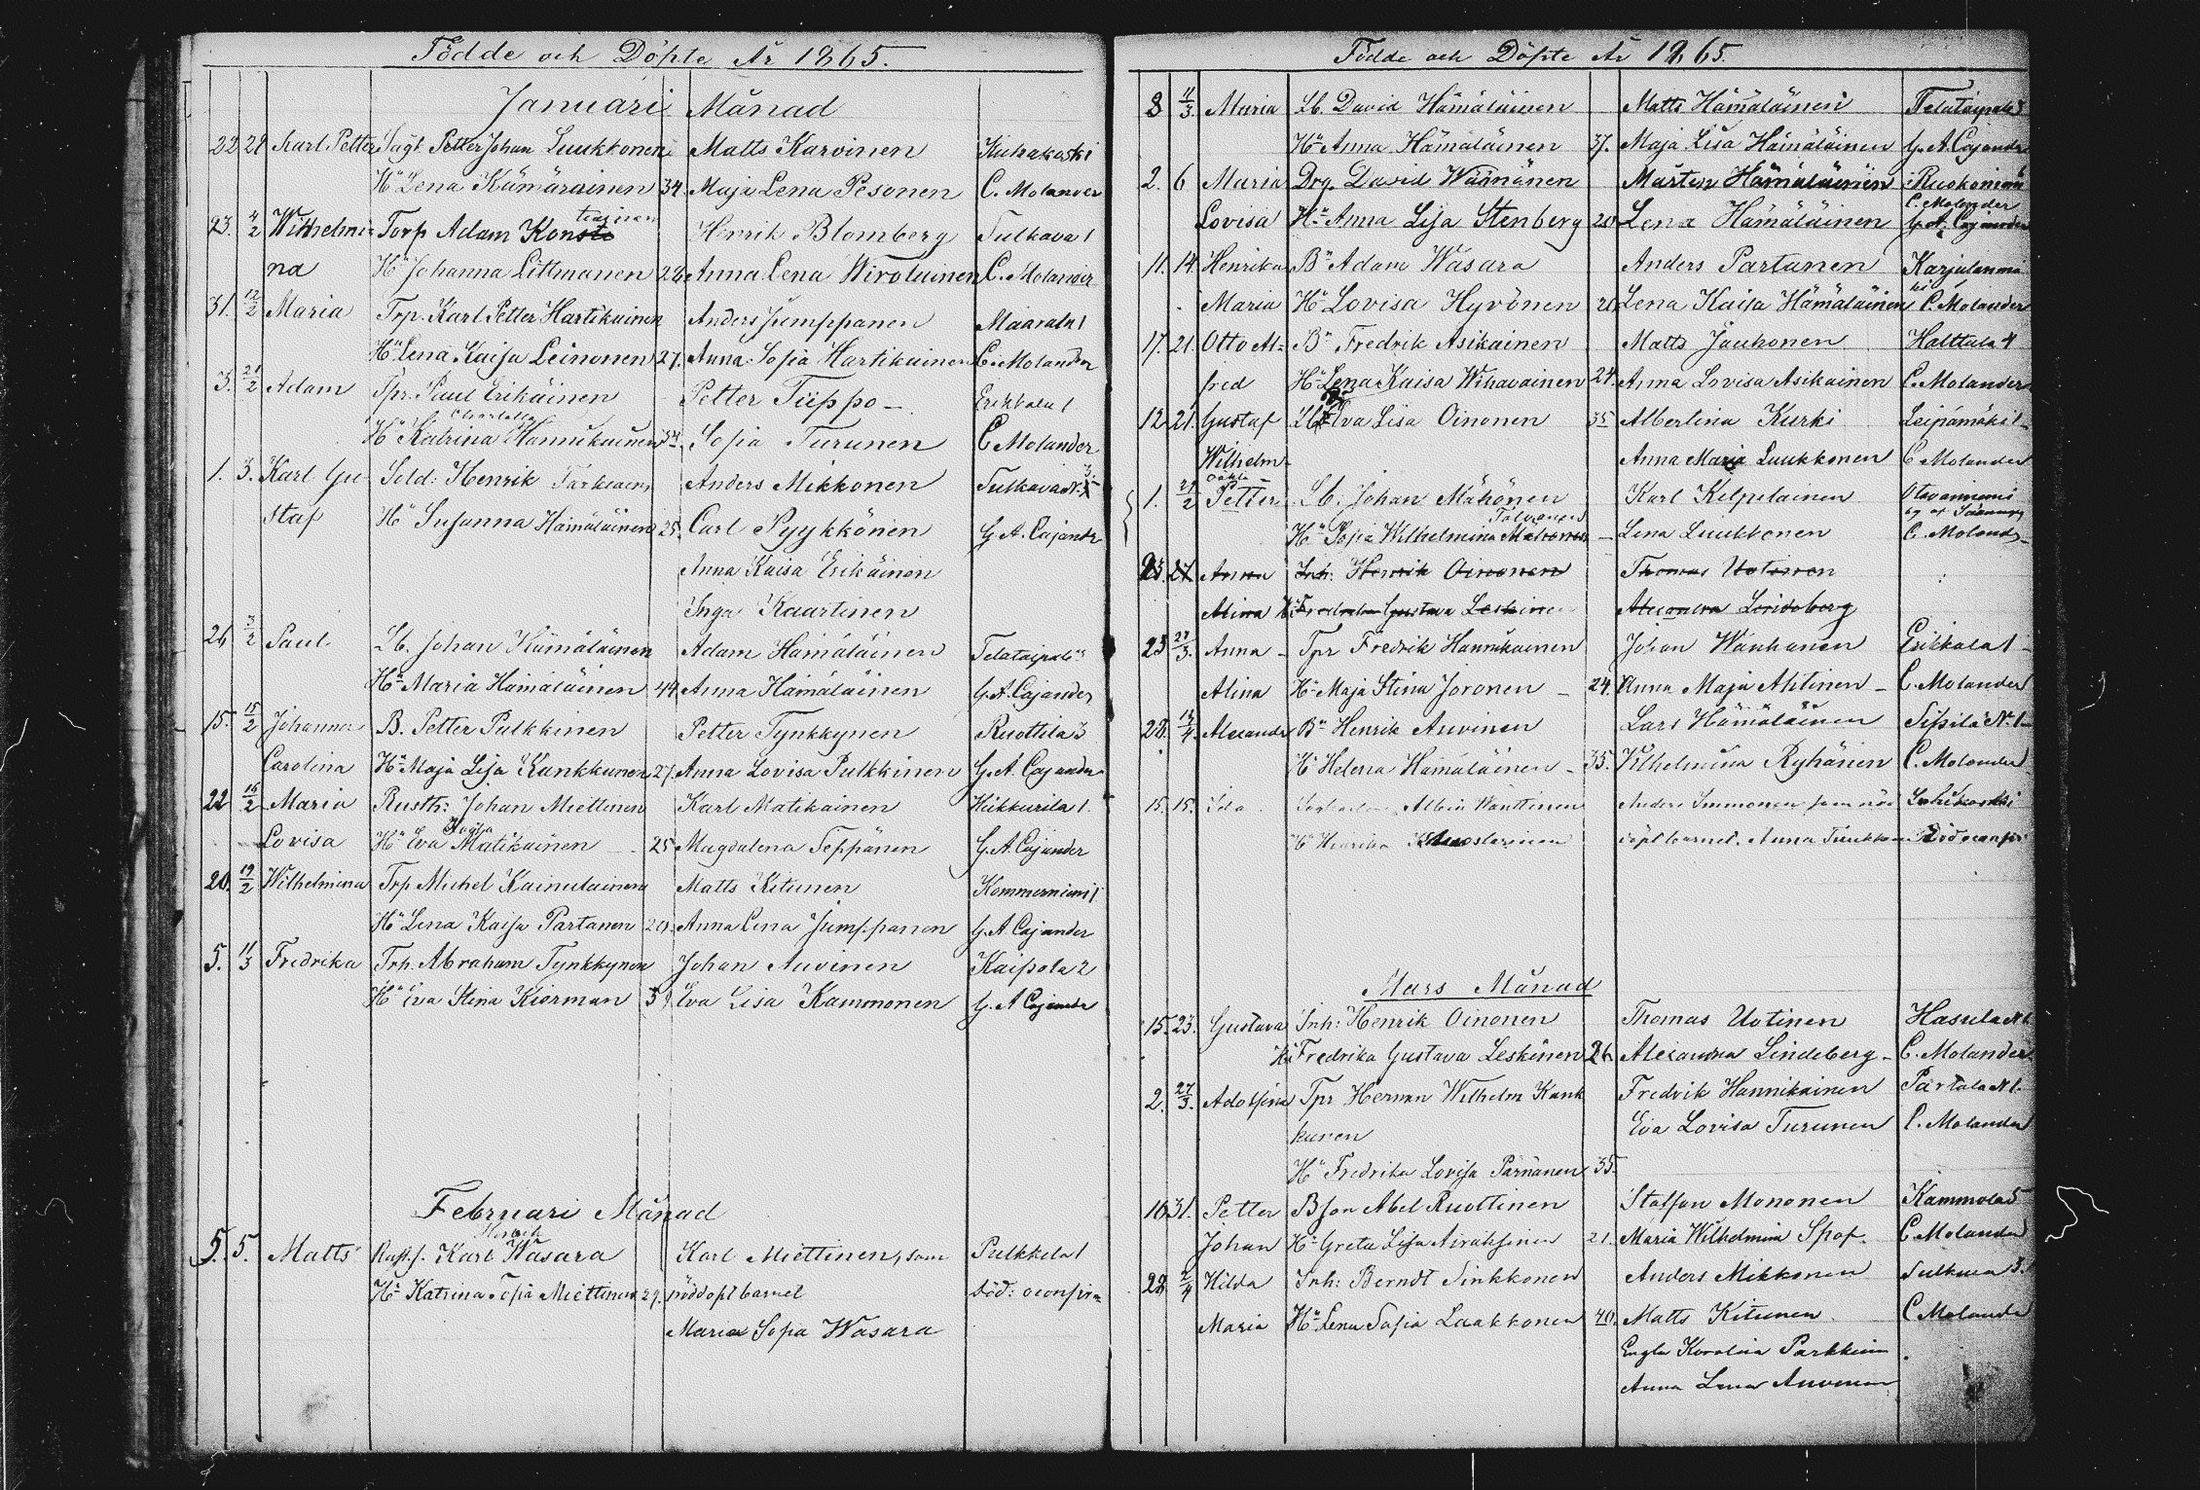 Födde och Döpte År 1865.
Januari Månad
22 29 Karl Petter Petter Johan Luukkonen Matts Karvinen Kuhakoski
Hu Lena Kämäräinen 34. Maja Lena Pesonen C. Molander
23. 4/2 Wilhelmi- Torp Adam Konsta Henrik Blomberg Tulkava 1
na Hu Johanna Littmanen 26 Anna Lena Wirolainen C. Molander
31. 12/2 Maria Trp. Karl Petter Hartikainen Anders Jumppanen Maarala 1
Hu Lena Kaisa Leinonen 27. Anna Sofia Hartikainen C. Molander
3. 21/2 Adam Tpr. Paul Erikäinen Petter Tiippo Erikkala 1
Hu Katrina Hannukainen 34. Sofia Turunen C Molander
1. 3. Karl Gu- Sold: Henrik Anders Mikkonen Tulkava N.
staf Hu Susanna Hämäläinen 25. Carl Pyykkönen G. A. Cajander
Anna Kaisa Erikäinen
Inga Kaartinen
26 3/2 Paul Lb. Johan Hämäläinen Adam Hämäläinen Telataipale
Hu Maria Hämäläinen 44 Anna Hämäläinen G. A. Cajander
15. 15/2 Johanna B. Petter Pulkkinen Petter Tynkkynen Ruottila 3
Carolina Hu Maja Lisa Kankkunen 27. Anna Lovisa Pulkkinen G. A. Cajander
22 16/2 Maria Rusth: Johan Miettinen Karl Matikainen Kukkurila 1.
Lovisa Hu Eva Matikainen 25 Magdalena Teppänen G. A. Cajander
20. 19/2 Wilhelmina Trp Michel Kainulainen Matts Kitunen Kommerniemi 1
Hu Lena Kaisa Partanen 20. Anna Lena Jumppanen G. A. Cajander
5. 11/3 Fredrika Trp. Abraham Tynkkynen Johan Auvinen Kaipola 2
Hu Eva Stina Kiärman Eva Lisa Kammonen G. A Cajander
Februari Månad
Henrik
5. 5. Matts Karl Wasara Karl Miettinen, som Pulkkela 1
Hu Katrina Sofia Miettinen 29. nöddöpt barnet död: oconfirm
Maria Sofia Wasara
Födde och Döpte År 1865.
8 11/3. Maria Lb. David Hämäläinen Matts Hämäläinen Telataipale
Hu Anna Hämäläinen 37. Maja Lisa Hämäläinen G. A. Cajander
2. 6 Maria Drg. David Wäänänen Mårten Hämäläinen Ruokoniemi
C. Molander
Lovisa Hu Anna Lisa Stenberg 20 Lena Hämäläinen G. A. Cajander
11. 14. Henrika Bn Adam Wasara Anders Partanen Karjulanmä
ki
Maria Hu Lovisa Hyvönen Lena Kaisa Hämäläinen C. Molander
17. 21. Otto Al- Bn Fredrik Asikainen Matts Jauhonen Halttula 4
fred Hu Lena Kaisa Wihavainen 24. Anna Lovisa Asikainen C. Molander
12 21. Gustaf Eva Lisa Oinonen 35 Albertina Kurki Leipämäki 1
Wilhelm Anna Maria Luukkonen C Molander
oäkta
1. 2 Petter Lb. Johan Mähönen Karl Kelpelainen Otavaniemi
Hu Sofia Wilhelmina Lena Luukkonen C. Molander
Anna Inh: Henrik Oinonen Thomas Uotinen
Alina Hu Fredrika Gustava Leskinen Alexandra Lindeberg
23 27/3. Anna Tpr Fredrik Hannikainen Johan Wanhanen Erikkala 1
Alina Hu Maja Stina Joronen 24. Anna Maja Ahtinen C. Molander
28. 4. Alexandr Bn Henrik Auvinen Lars Hämäläinen Sipilä N. 1
Hu Helena Hämäläinen 35. Wilhelmina Ryhänen C. Molander
15. 15. Ida Albin Wänttinen Anders Immonen som nöd
Hu Henrika döpt barnet. Anna Död oconfir
Mars Månad
15. 23. Gustava Inh: Henrik Oinonen Thomas Uotinen Hasula N 1
Hu Fredrika Gustava Leskinen 26 Alexandra Lindeberg C. Molander
2. 27/3. Adolfina Tpr Herman Wilhelm Kank Fredrik Hannikainen Partala N 1.
kunen Eva Lovisa Turunen C. Molander
Hu Fredrika Lovisa Parnanen 35.
16 31. Petter Bson Abel Ruottinen Staffan Mononen Kammola 5
Johan Hu Greta Lisa Airaksinen 21. Maria Wilhelmina Spof C Molander
28 2/4 Hilda Inh: Berndt Sinkkonen Anders Mikkonen Tulkava 3.
Maria Hu Lena Sofia Laakkonen 40. Matts Kitunen C Molander
Engla Karolina Parkkinen
Anna Lena Auvinen